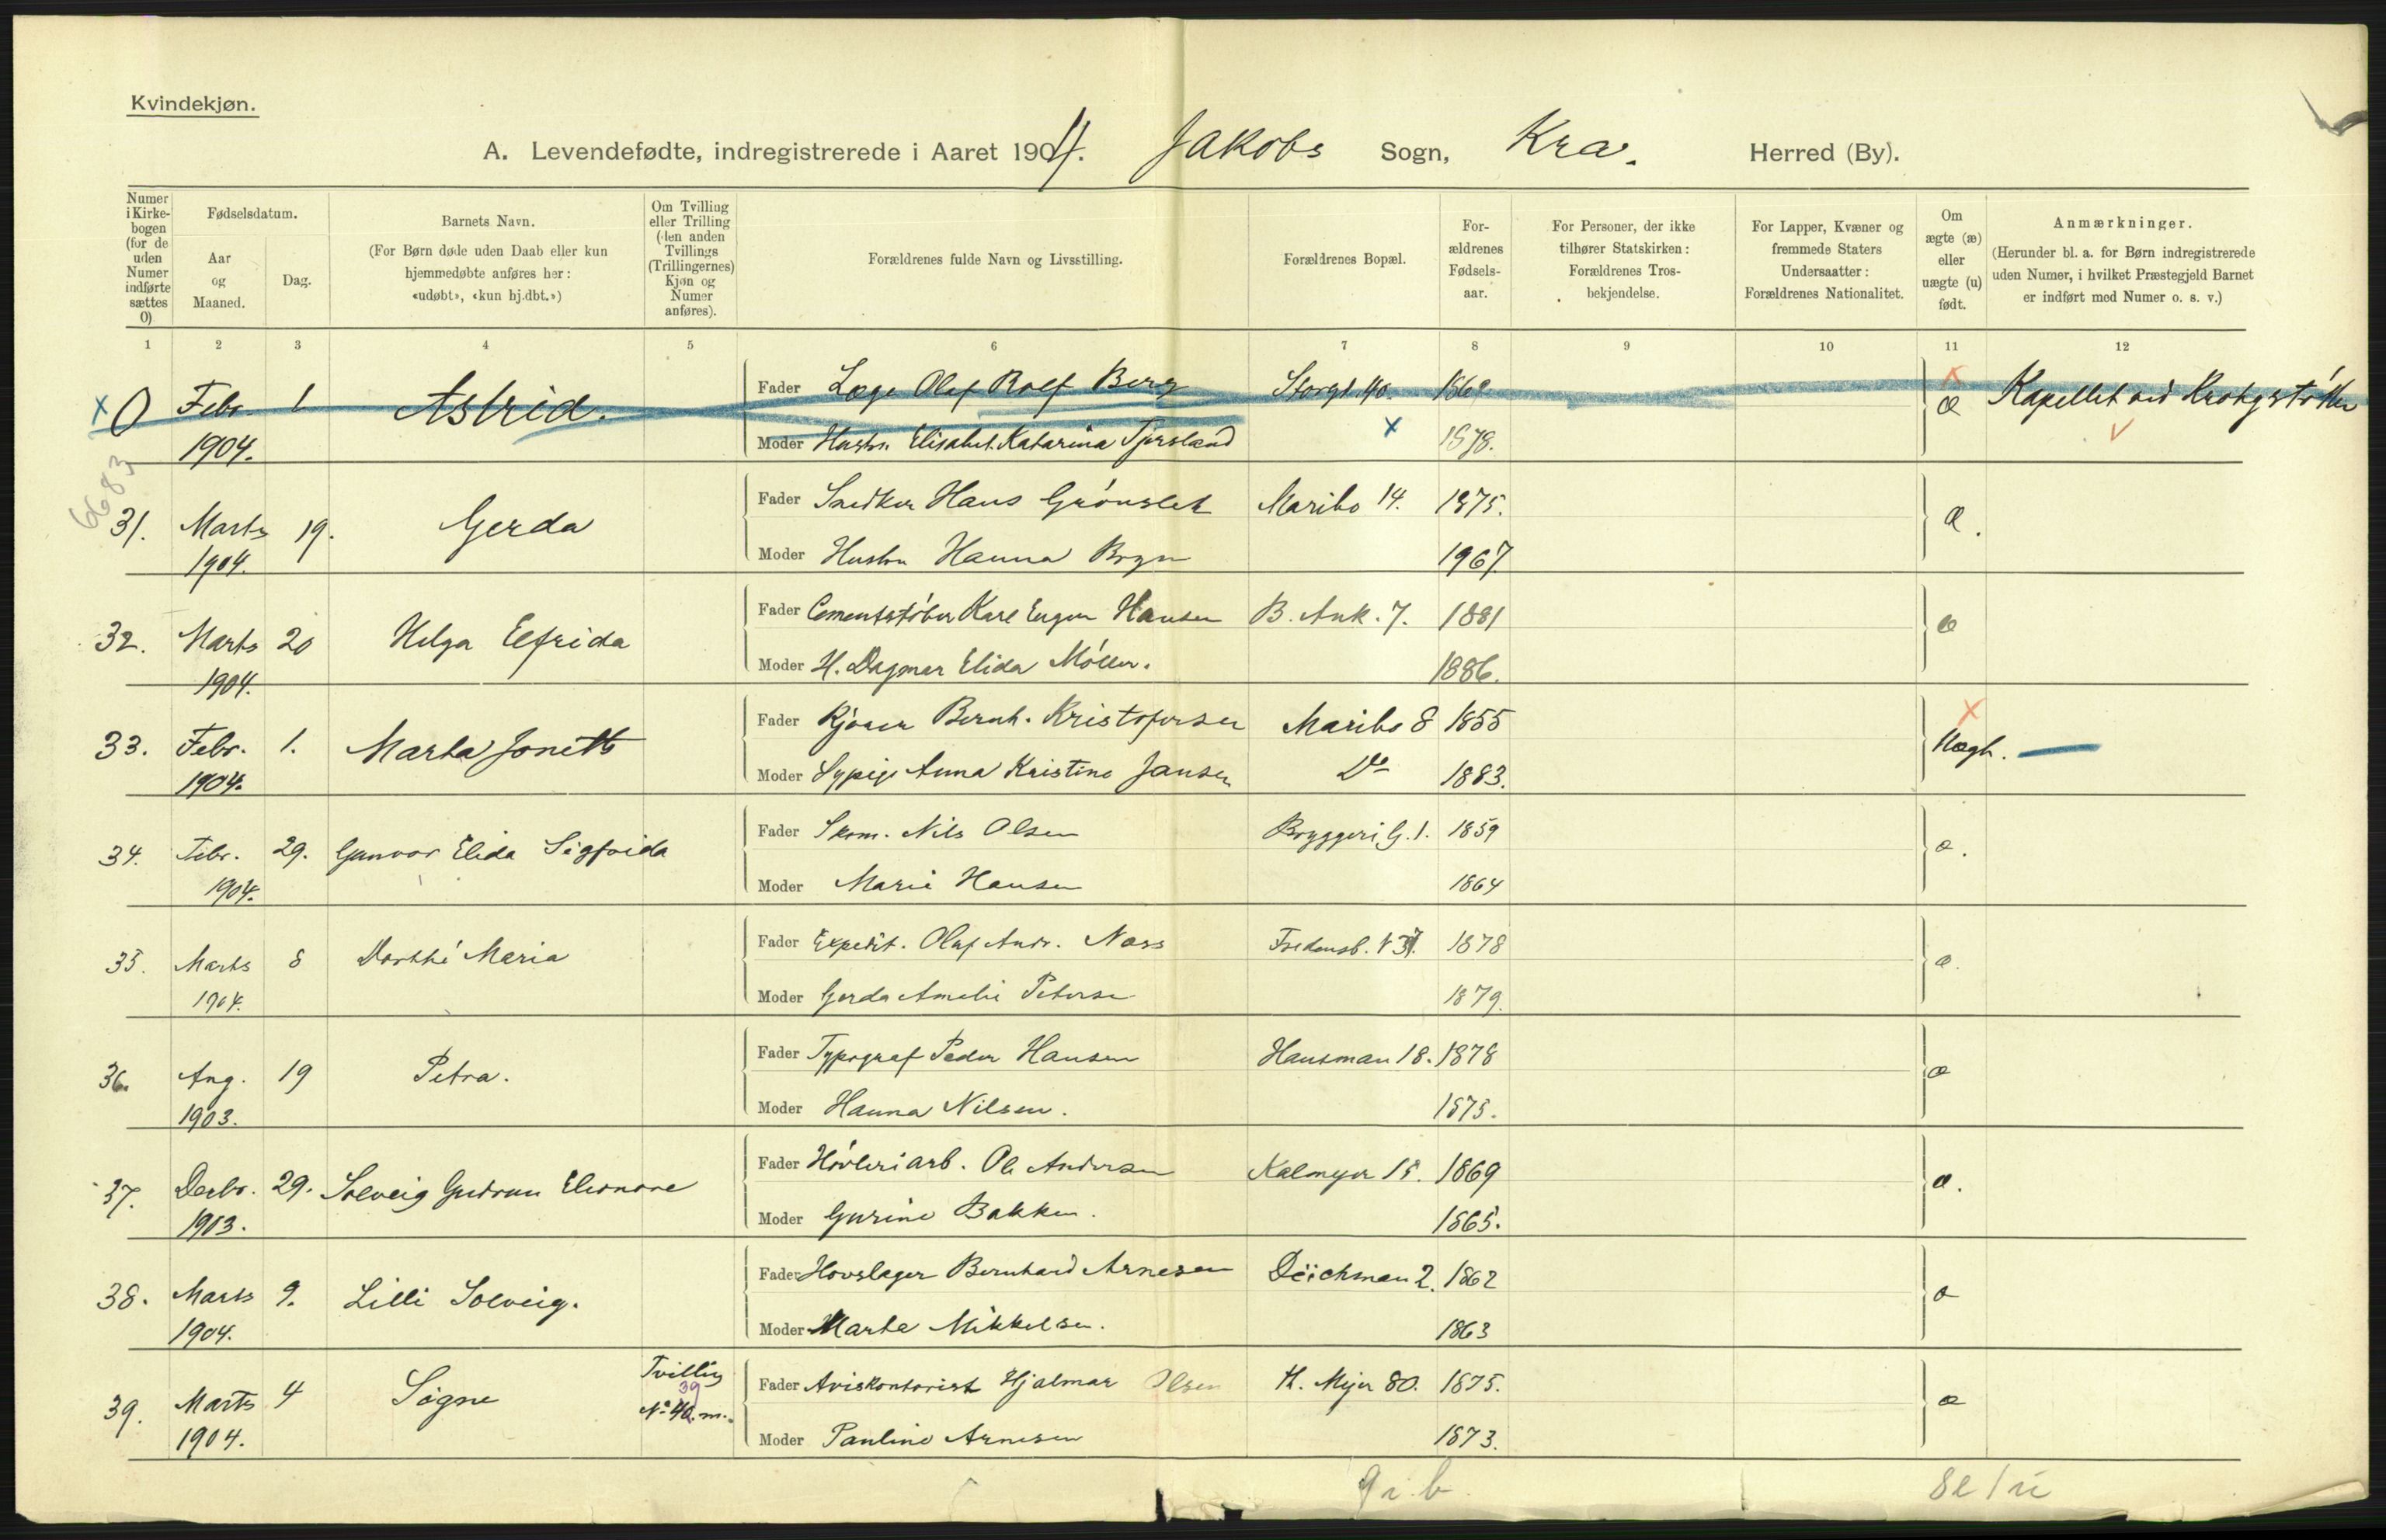 Kvindekjøn.
A. Levendefødte, indregistrerede i Aaret 1904. Jakobs Sogn, Kra. Herred (By).
Numer i Kirkebogen (for de uden Numer indførte sættes 0)
Fødselsdatum.
Aar og Maaned.
Dag.
Barnets Navn.
(For Børn døde uden Daab eller kun hjemmedøbte anføres her: «udøbt», «kun hj.dbt.»)
Om Tvilling eller Trilling (den anden Tvillings (Trillingernes) Kjøn og Numer anføres).
Forældrenes fulde Navn og Livsstilling.
Forældrenes Bopæl.
Forældrenes Fødselsaar.
For Personer, der ikke tilhører Statskirken: Forældrenes Trosbekjendelse.
For Lapper, Kvæner og fremmede Staters Undersaatter: Forældrenes Nationalitet.
Om ægte (æ) eller uægte (u) født.
Anmærkninger.
(Herunder bl. a. for Børn indregistrerede uden Numer, i hvilket Præstegjeld Barnet er indført med Numer o. s. v.)
1 2 3 4 5 6 7 8 9 10 11 12
x 0 Febr. 1 Astrid. Fader Læge Olaf Rolf Berg Storgt. 40. 1869 x æ Kapellet ved Krohgstøtten
1904. Moder Hustru Elisabet Katarina Tjersland x 1878.
6683
31. Marts 19. Gerda Fader Snedker Hans Grønslet Maribo 14. 1875. æ.
1904. Moder Hustru Hanna Bryn 1967
32. Marts 20 Helga Elfrida Fader Cementstøber Karl Eugen Hansen B. Ank. 7. 1881 æ
1904. Moder H. Dagmar Elida Møller. 1886.
33. Febr. 1. Marta Jonette Fader Kjører Bernh. Kristofersen Maribo 8 1855 x Uægt.
1904. Moder Sypige Anna Kristine Jansen Do 1883.
34. Febr. 29. Gunvor Elida Sigfrida Fader Skom. Nils Olsen Bryggeri G. 1. 1859 æ.
1904. Moder Marie Hansen 1864
35. Marts 8 Dorthé Maria Fader Expedit. Olaf Andr. Næss Fredensb. V 37. 1878 æ.
1904. Moder Gerda Amelie Petersen 1879.
36. Aug. 19 Petra. Fader Typograf Peder Hansen Hausman 18. 1878 æ
1903. Moder Hanna Nilsen. 1875.
37. Decbr. 29. Solveig Gudrun Eleonore Fader Høvleriarb. Ole Andersen Kalmeyer 15. 1869 æ.
1903. Moder Gurine Bakken. 1865.
38. Marts 9. Lilli Solveig. Fader Hovslager Bernhard Arnesen Deichman 2. 1862 æ
1904. Moder Marta Mikkelsen. 1863
39. Marts 4 Signe Tvilling 39 No 40. m. Fader Aviskontorist Hjalmar Olsen H. Mejer 80. 1875. æ
1904. Moder Pauline Arnesen 1873.
9 i b. 8 e / u